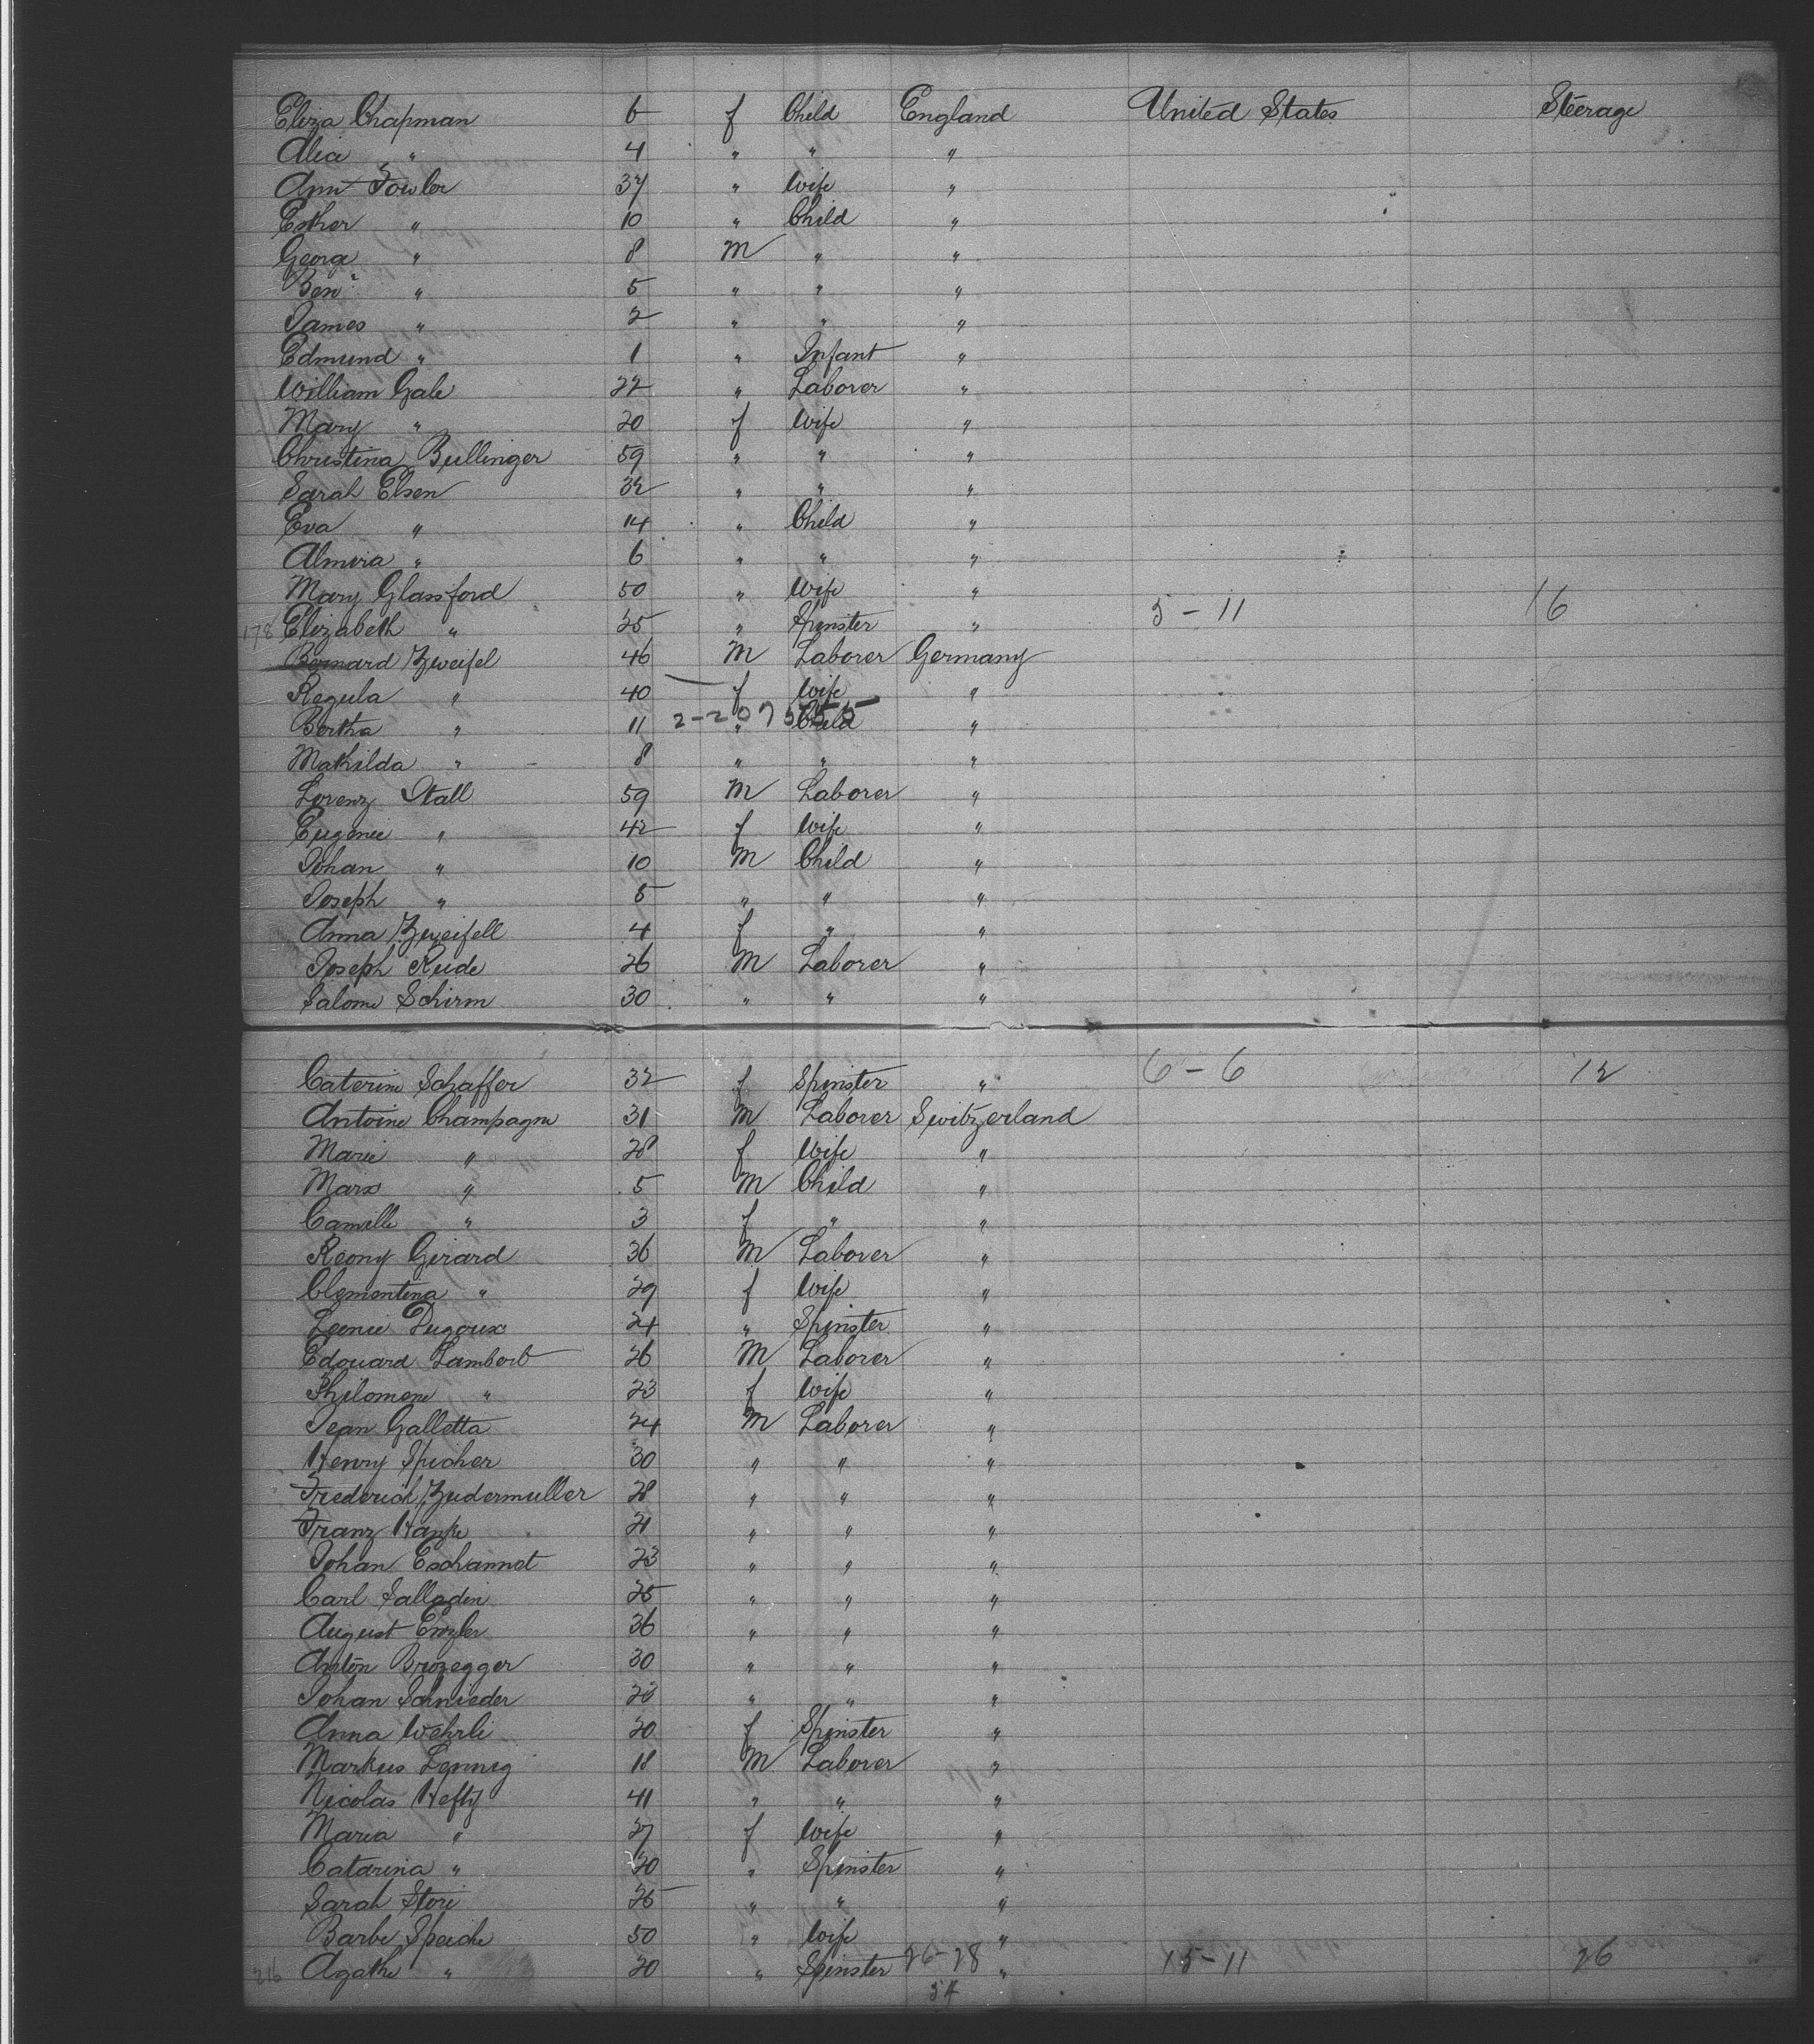 Eliza Chapman 6 f Child England United States Steerage
Alice " 4 " " "
Ann Fowler 37 " Wife "
Esther " 10 " Child "
George " 8 M " "
Ben " 5 " " "
James " 2 " " "
Edmund " 1 " Infant "
William Gale 22 " Laborer "
Mary " 20 f Wife "
Christina Bullinger 59 " " "
Sarah Elsen 32 " " "
Eva " 14 " Child "
Almira " 6 " " "
Mary Glassford 50 " Wife "
178 Elizabeth " 25 " Spinster " 5-11 16
Bernard Zweifel 46 M Laborer Germany
Regula " 40 f Wife "
Bertha " 11 " Child "
Mathilda " 8 " " "
Lorenz Stall 59 M Laborer "
Eugenie " 42 f Wife "
Johan " 10 M Child "
Joseph " 5 " " "
Anna Zweifell 4 f " "
Joseph Rude 26 M Laborer "
Salome Schirm 30 " " "
Caterine Schaffer 32 f Spinster " 6-6 12
Antoine Champagne 31 M Laborer Switzerland
Marie " 28 f Wife "
Marx " 5 M Child "
Camille " 3 f " "
Reony Girard 36 M Laborer "
Clementina " 29 f Wife "
Leonie Dugoux 24 " Spinster "
Edouard Lambert 26 M Laborer "
Philomene " 23 f Wife "
Jean Galletta 24 M Laborer "
Henry Spicher 30 " " "
Frederick Zudermuller 28 " " "
Franz 21 " " "
Johan Eschannot 23 " " "
Carl Salladin 25 " " "
August 36 " " "
Anton Brozegger 30 " " "
Johan Schnieder 23 " " "
Anna Wehrli 20 f Spinster "
Markus Lennig 18 M Laborer "
Nicolas Hefty 41 " " "
Maria " 27 f Wife "
Catarina " 20 " Spinster "
Sarah Stori 25 " " "
Barbe Speiche 50 " Wife "
216 Agathe " 20 " Spinster 26-28 " 15-11 26
54